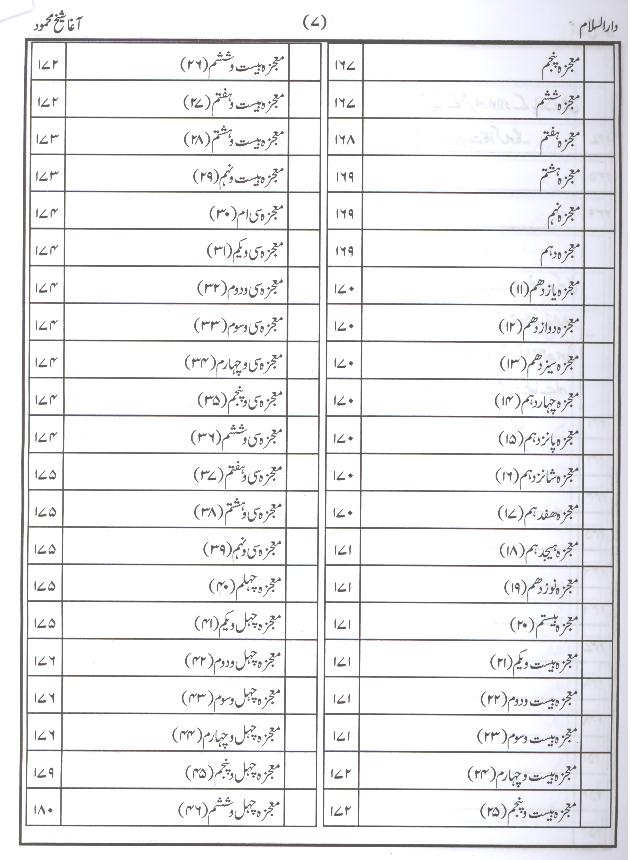 دارالسلام (۷) آغا شیخ محمود
معجزہ پنجم ۱۶۷
معجزہ ششم ۱۶۷
معجزہ ہفتم ۱۶۸
معجزہ ہشتم ۱۶۹
معجزہ نہم ۱۶۹
معجزہ دہم ۱۶۹
معجزہ یازدھم (۱۱) ۱۷۰
معجزہ دوازدھم (۱۲) ۱۷۰
معجزہ سیزدھم (۱۳) ۱۷۰
معجزہ چہاردہم (۱۴) ۱۷۰
معجزہ پانزدہم (۱۵) ۱۷۰
معجزہ شانزدہم (۱۶) ۱۷۰
معجزہ ھفدہم (۱۷) ۱۷۰
معجزہ ہیجدہم (۱۸) ۱۷۱
معجزہ نوزدھم (۱۹) ۱۷۱
معجزہ بیستم (۲۰) ۱۷۱
معجزہ بیست ویکم (۲۱) ۱۷۱
معجزہ بیست ودوم (۲۲) ۱۷۱
معجزہ بیست وسوم (۲۳) ۱۷۱
معجزہ بیست وچہارم (۲۴) ۱۷۲
معجزہ بیست وپنجم (۲۵) ۱۷۲
معجزہ بیست وششم (۲۶) ۱۷۲
معجزہ بیست وہفتم (۲۷) ۱۷۲
معجزہ بیست وہشتم (۲۸) ۱۷۳
معجزہ بیست ونہم (۲۹) ۱۷۳
معجزہ سی ام (۳۰) ۱۷۴
معجزہ سی ویکم (۳۱) ۱۷۴
معجزہ سی ودوم (۳۲) ۱۷۴
معجزہ سی وسوم (۳۳) ۱۷۴
معجزہ سی وچہارم (۳۴) ۱۷۴
معجزہ سی وپنجم (۳۵) ۱۷۴
معجزہ سی وششم (۳۶) ۱۷۴
معجزہ سی وہفتم (۳۷) ۱۷۵
معجزہ سی وہشتم (۳۸) ۱۷۵
معجزہ سی ونہم (۳۹) ۱۷۵
معجزہ چہلم (۴۰) ۱۷۵
معجزہ چہل ویکم (۴۱) ۱۷۵
معجزہ چہل ودوم (۴۲) ۱۷۶
معجزہ چہل وسوم (۴۳) ۱۷۶
معجزہ چہل وچہارم (۴۴) ۱۷۶
معجزہ چہل وپنجم (۴۵) ۱۷۹
معجزہ چہل وششم (۴۶) ۱۸۰